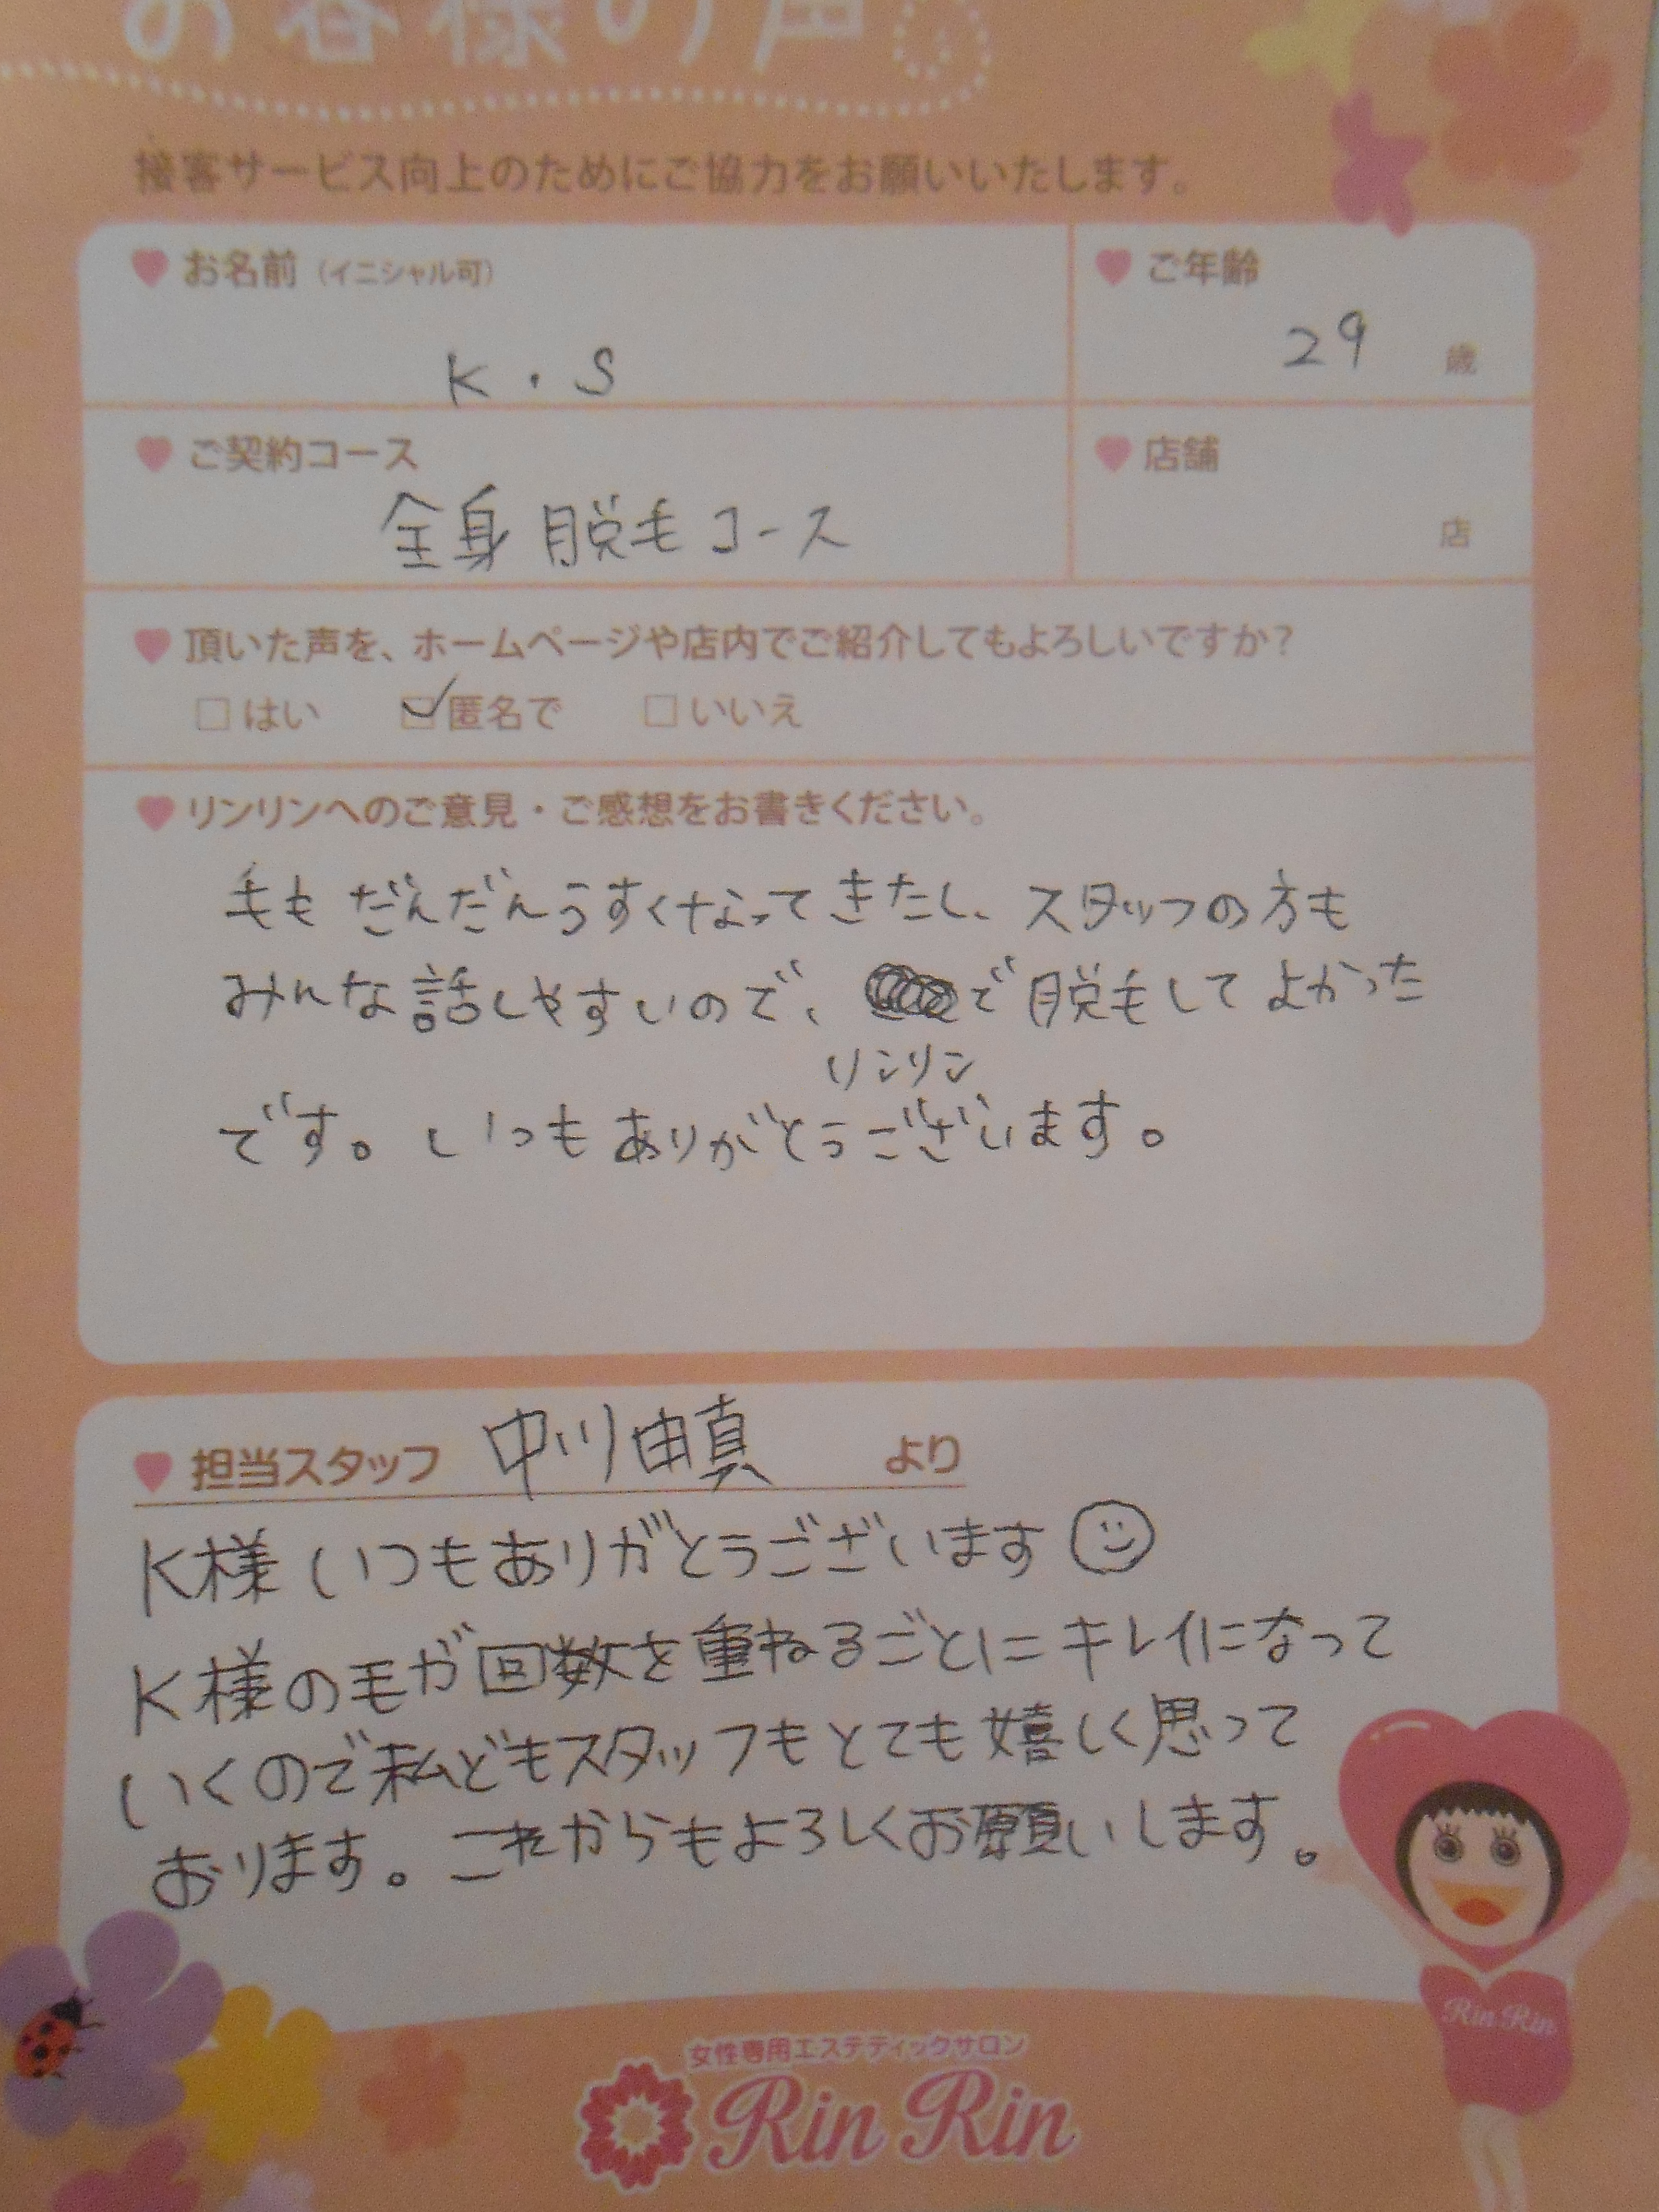 お客様の声
接客サービス向上のためにご協力をお願いいたします。
お名前（イニシャル可）
K・S
ご年齢
29 歳
ご契約コース
全身脱毛コース
店舗
店
頂いた声を、ホームページや店内でご紹介してもよろしいですか？
□はい ☑匿名で □いいえ
リンリンへのご意見・ご感想をお書きください。
毛もだんだんうすくなってきたし、スタッフの方も
みんな話しやすいので、で脱毛してよかった
リンリン
です。いつもありがとうございます。
担当スタッフ 中川由真 より
K様いつもありがとうございます
K様の毛が回数を重ねるごとにキレイになって
いくので私どもスタッフもとても嬉しく思って
おります。これからもよろしくお願いします。
Rin Rin
女性専用エステティックサロン
Rin Rin